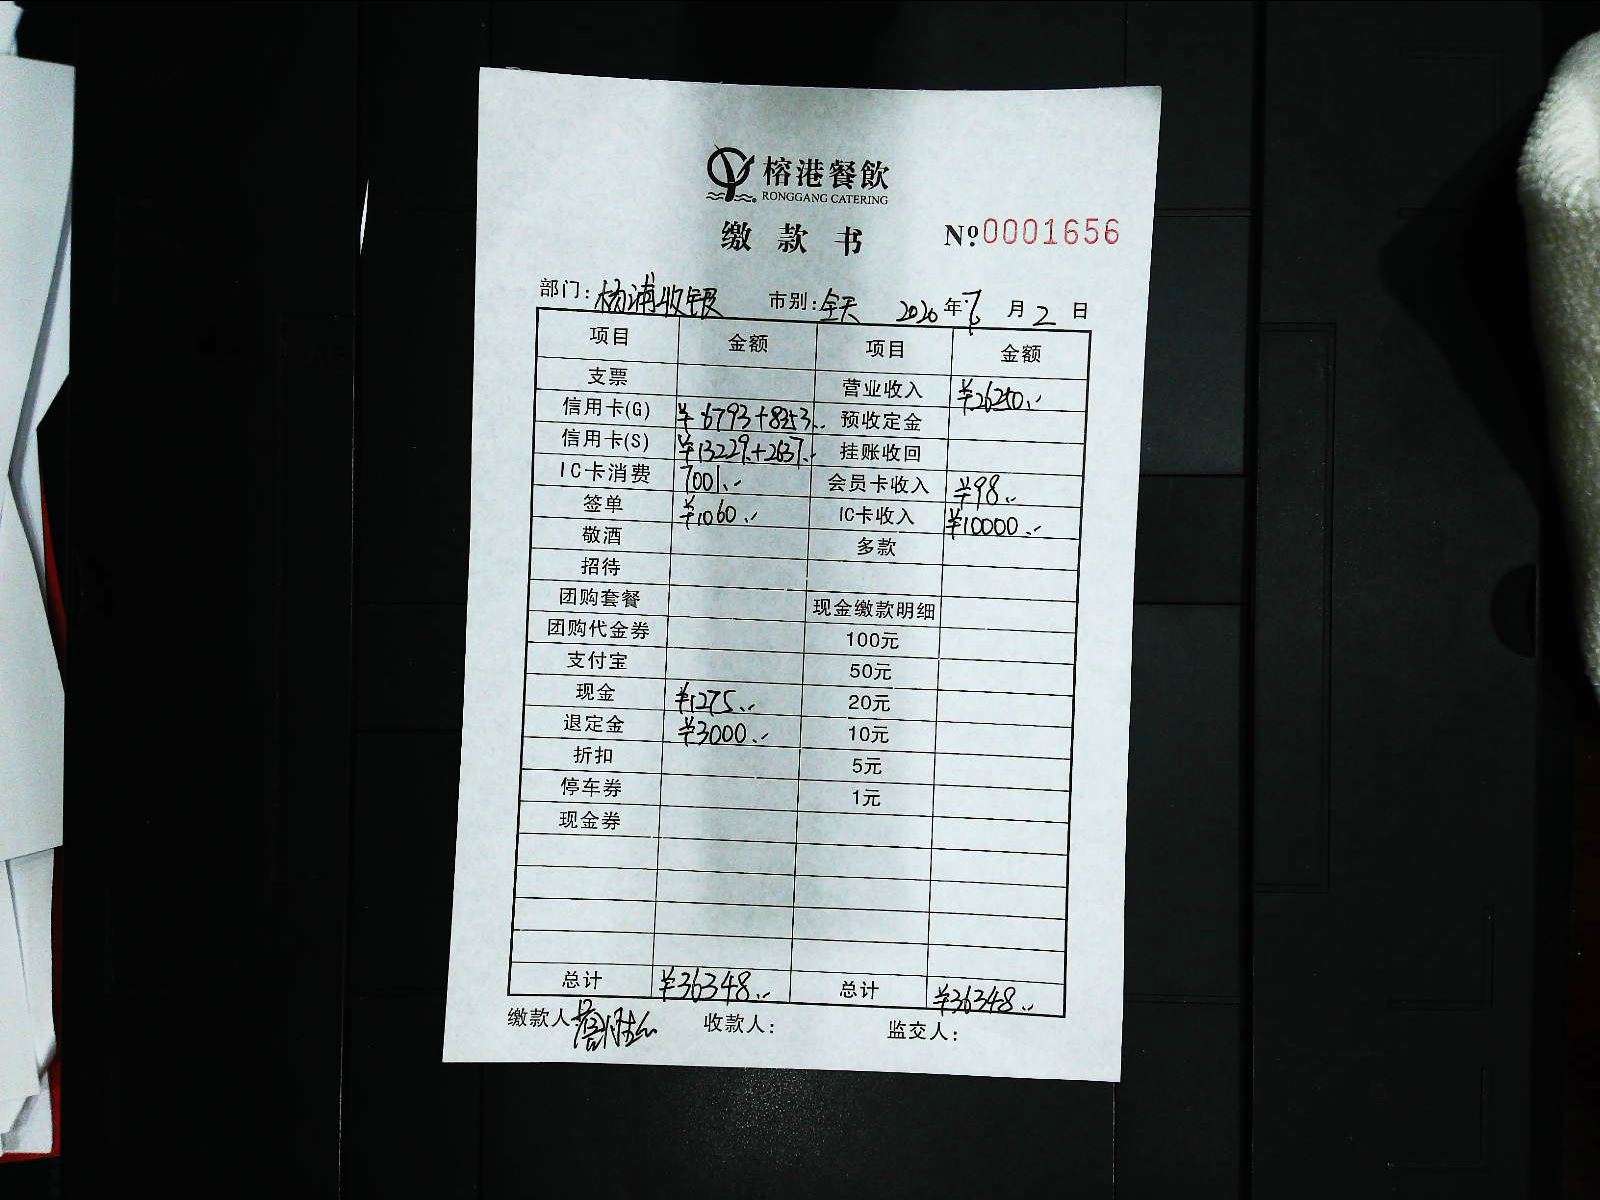 榕港餐飲
RONGGANG CATERING
缴款书 Nº0001656
部门：杨浦收银 市别：全天 2020年7月2日
项目 金额 项目 金额
支票 营业收入 ¥26250.-
信用卡(G) ¥6793+8353.- 预收定金
信用卡(S) ¥13229.+2637.- 挂账收回
IC卡消费 7001.- 会员卡收入 ¥98.-
签单 ¥1060.- IC卡收入 ¥10000.-
敬酒 多款
招待
团购套餐 现金缴款明细
团购代金券 100元
支付宝 50元
现金 ¥1275.- 20元
退定金 ¥3000.- 10元
折扣 5元
停车券 1元
现金券
总计 ¥36348.- 总计 ¥36348.-
缴款人 收款人： 监交人：